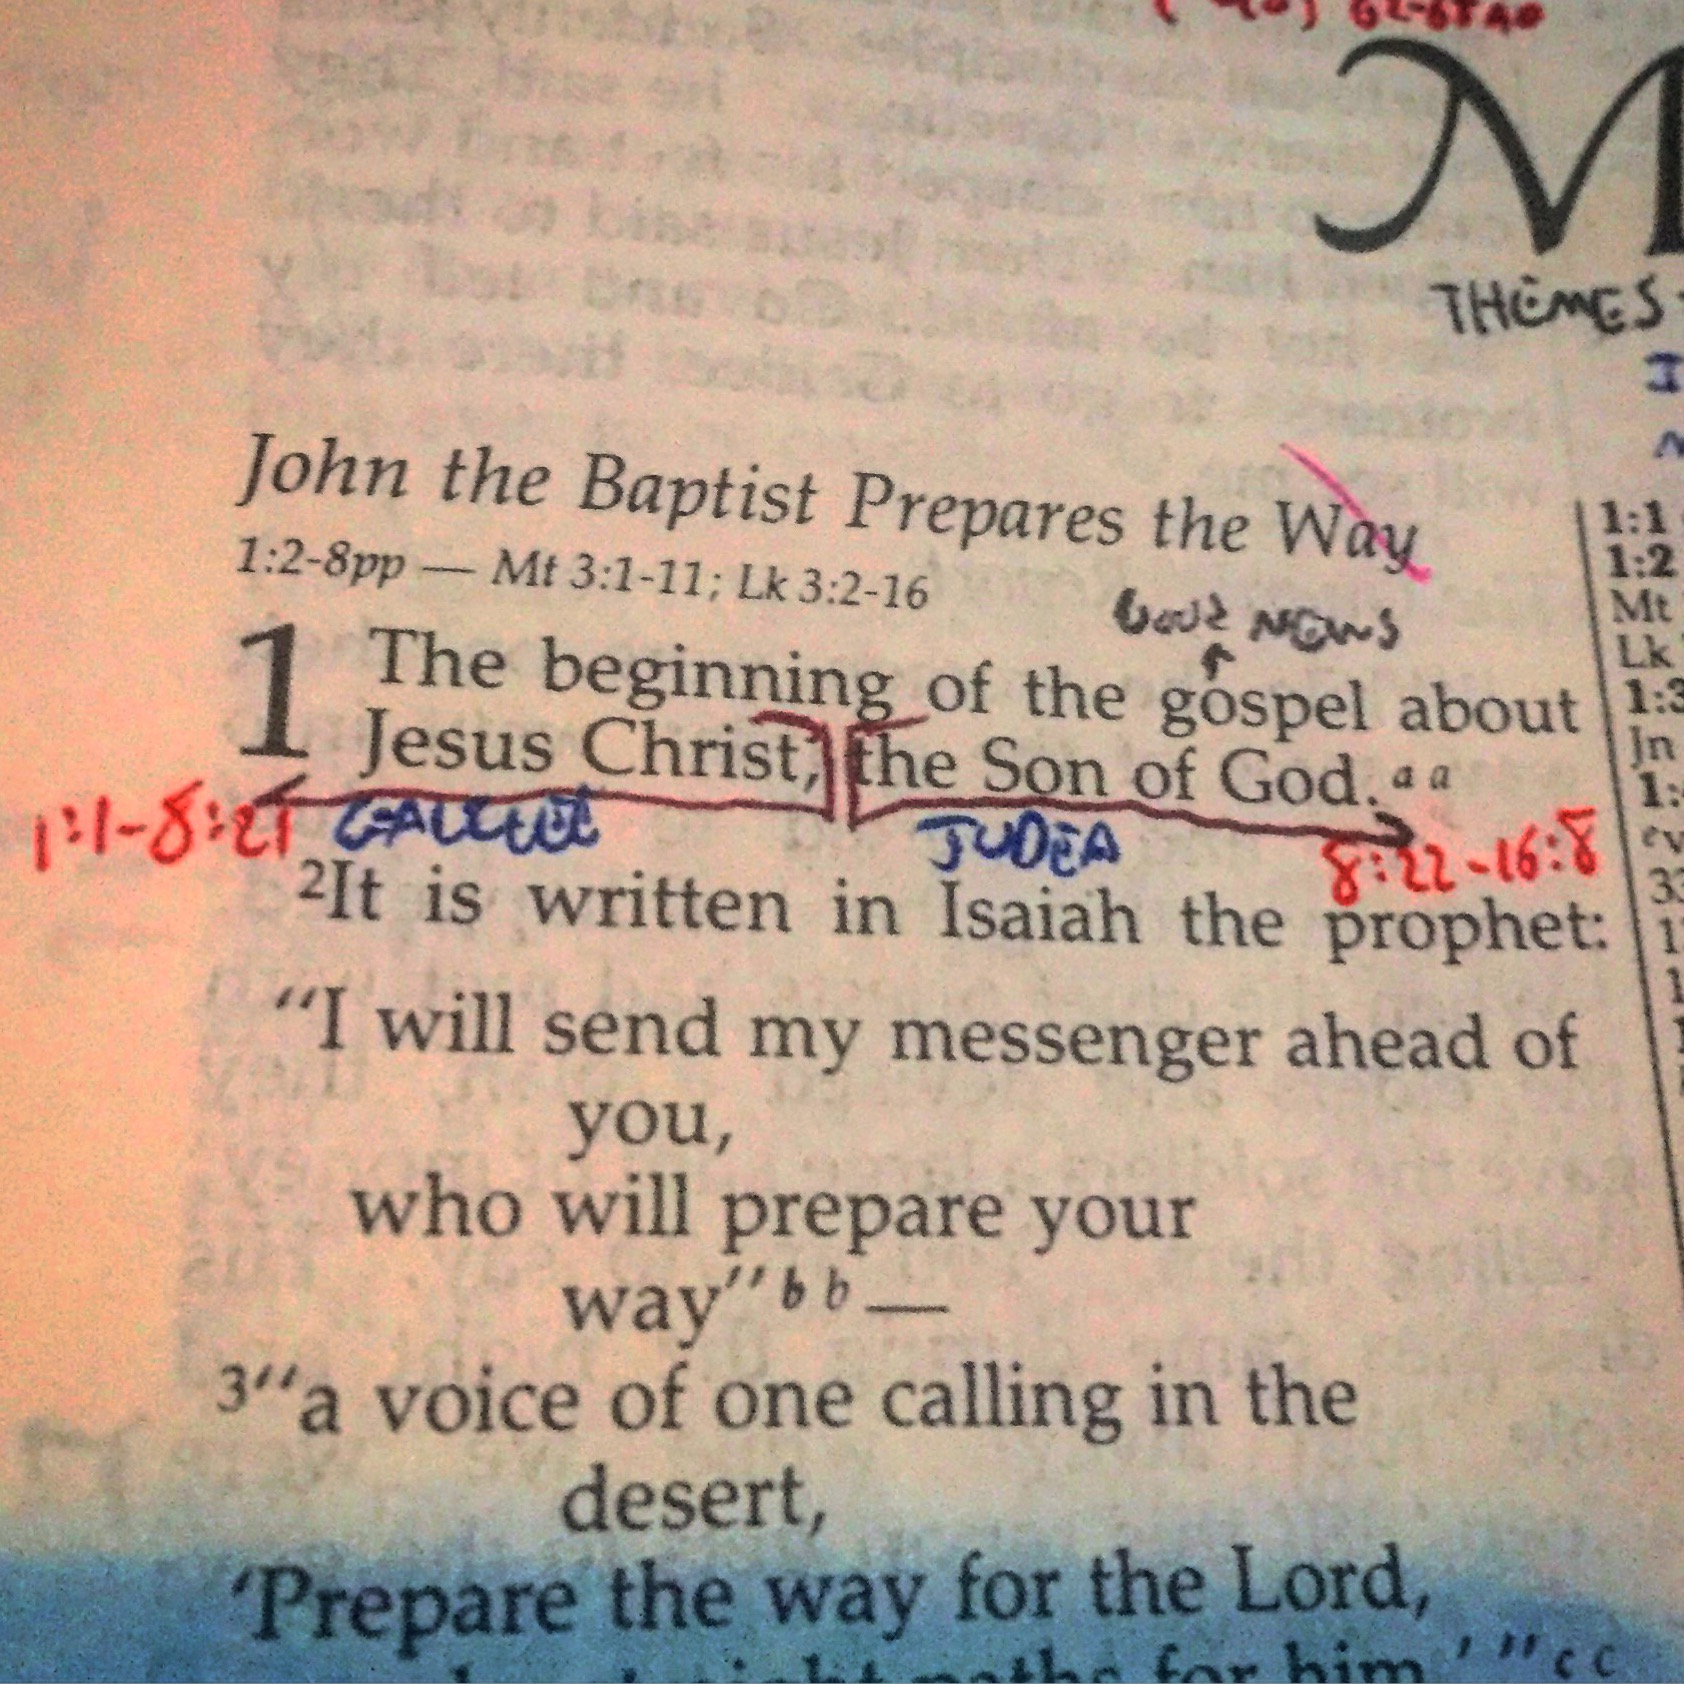 M
THEMES
John the Baptist Prepares the Way
1:2-8pp — Mt 3:1-11; Lk 3:2-16
GOOD NEWS
1 The beginning of the gospel about
Jesus Christ, the Son of God. a a
1:1-8:21 GALILEE JUDEA 8:22-16:8
2It is written in Isaiah the prophet:
“I will send my messenger ahead of
you,
who will prepare your
way” b b —
3“a voice of one calling in the
desert,
‘Prepare the way for the Lord,
paths for him.’ ” c c
1:1
1:2
Mt
Lk
1:3
Jn